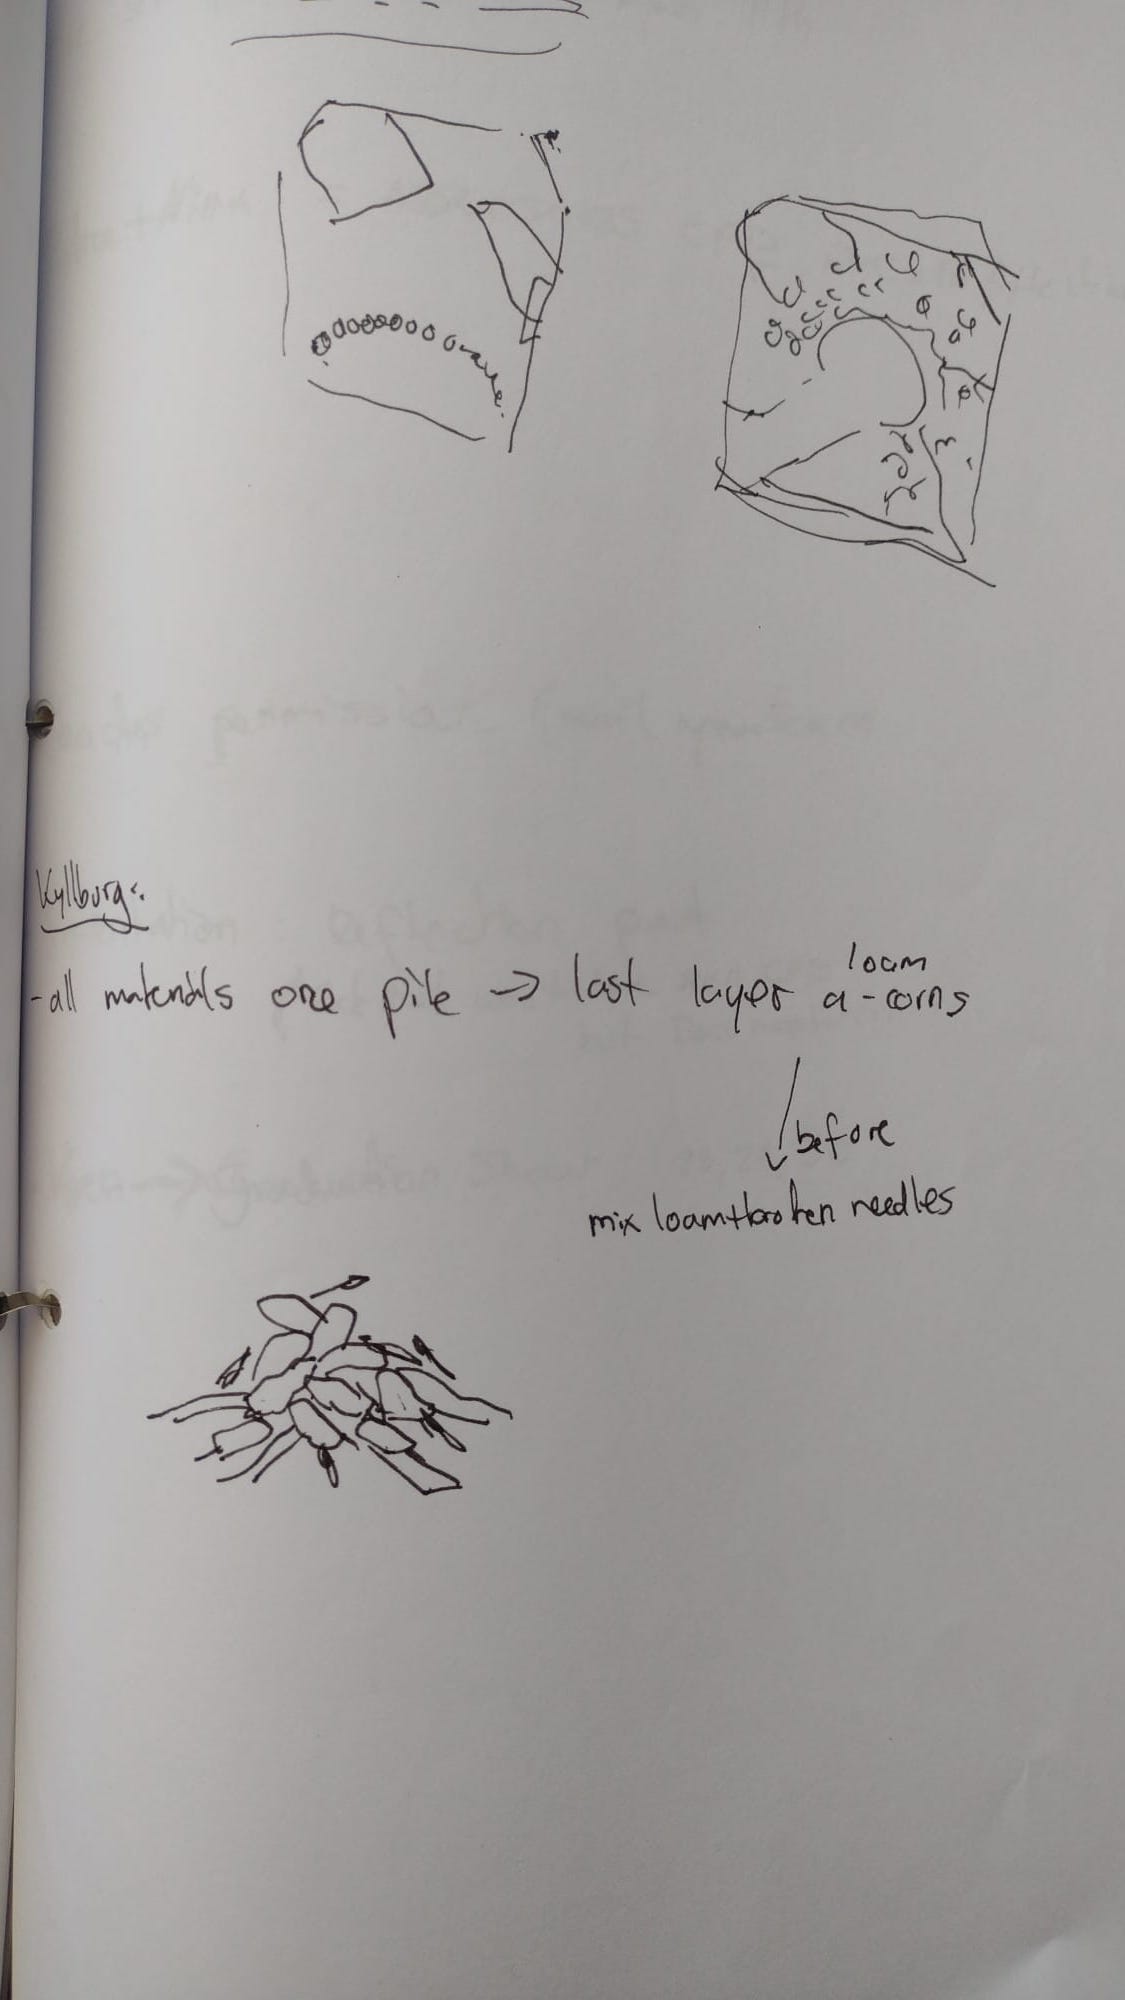 Kyllburg:
loam
-all materials one pile → last layer a-corns
before
mix loam+broken needles